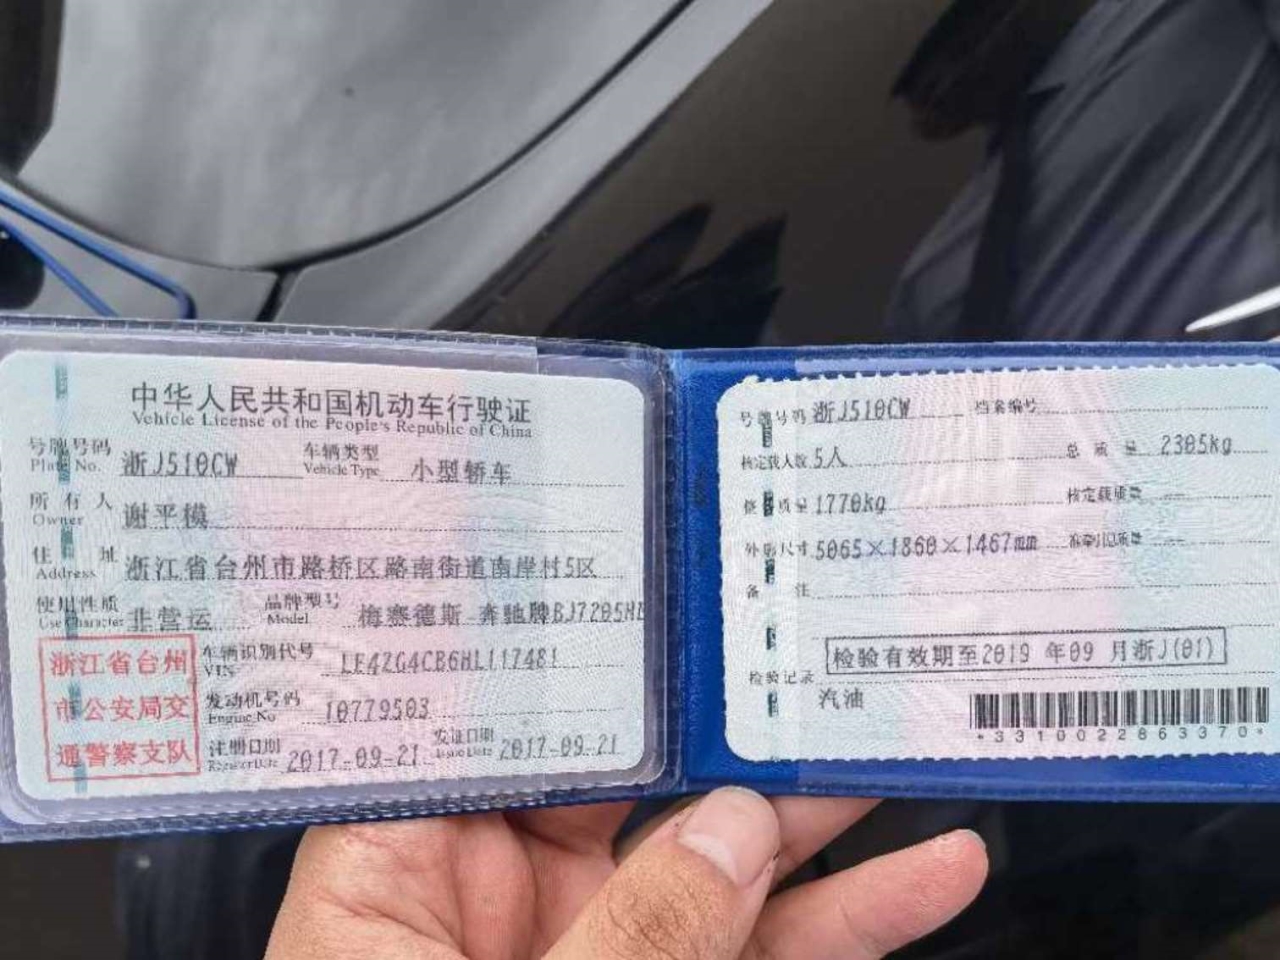 中华人民共和国机动车行驶证
Vehicle License of the People's Republic of China
号牌号码 浙J510CW 车辆类型 小型轿车
Plate No. Vehicle Type
所有人 谢平模
Owner
住址 浙江省台州市路桥区路南街道南岸村5区
Address
使用性质 非营运 品牌型号 梅赛德斯-奔驰牌BJ7205H
Use Character Model
浙江省台州
市公安局交
通警察支队
车辆识别代号 LE4ZG4CB6HL117481
VIN
发动机号码 10779503
Engine No
注册日期 2017-09-21 发证日期 2017-09-21
Register Date Issue Date
号牌号码 浙J510CW 档案编号
核定载人数 5人 总质量 2305kg
整备质量 1770kg 核定载质量
外廓尺寸 5065×1860×1467mm 准牵引总质量
备注
检验有效期至2019年09月浙J(01)
检验记录
汽油
*3310022863370*